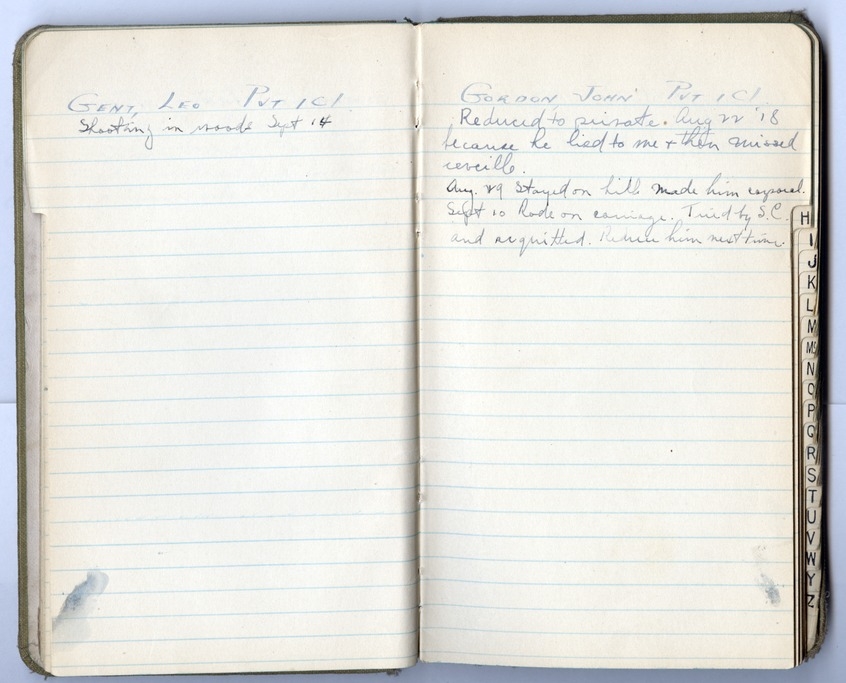 GENT, LEO PVT 1Cl.
Shooting in woods Sept 14
GORDON JOHN PVT 1Cl.
Reduced to private. Aug 22 '18
because he lied to me + then missed
reveille.
Aug. 29 Stayed on hill made him corporal.
Sept 10 Rode on carriage. Tried by S.C.
and acquitted. Reduce him next time.
H
I
J
K
L
M
Mc
N
O
P
Q
R
S
T
U
V
W
Y
Z